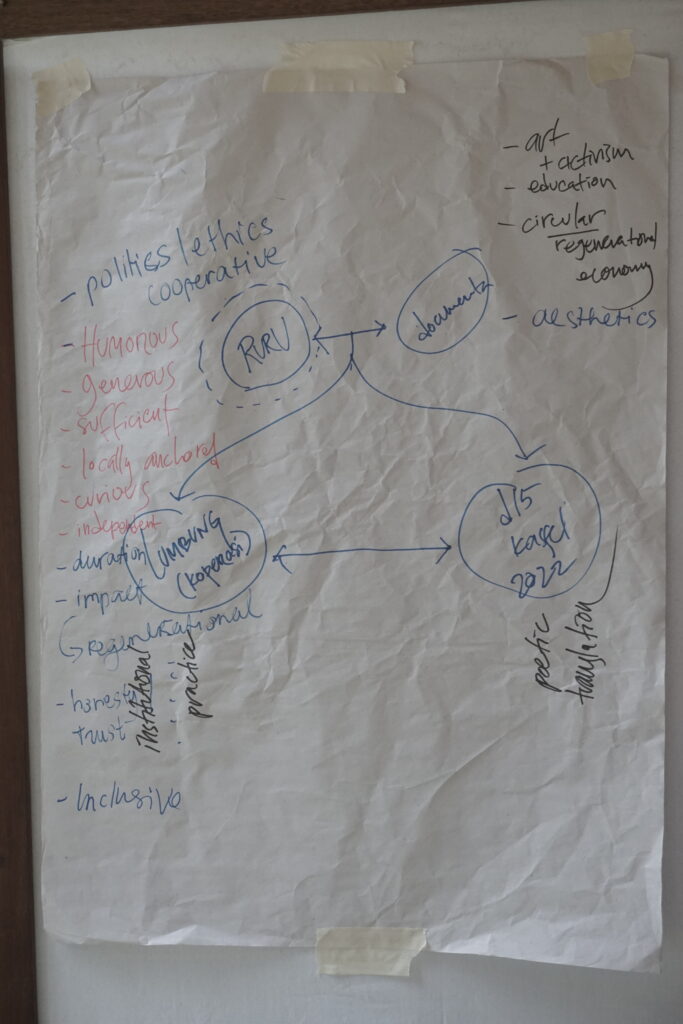 - art
+ activism
- education
- circular
regenerational
economy
- aesthetics
- politics/ethics
cooperative
- Humorous
- generous
- sufficient
- locally anchored
- curious
- independent
- duration
- impact
regenerational
- honesty
trust
- Inclusive
RURU
documenta
LUMBUNG
(koperasi)
d15
Kassel
2022
institutional
practice
poetic
translation